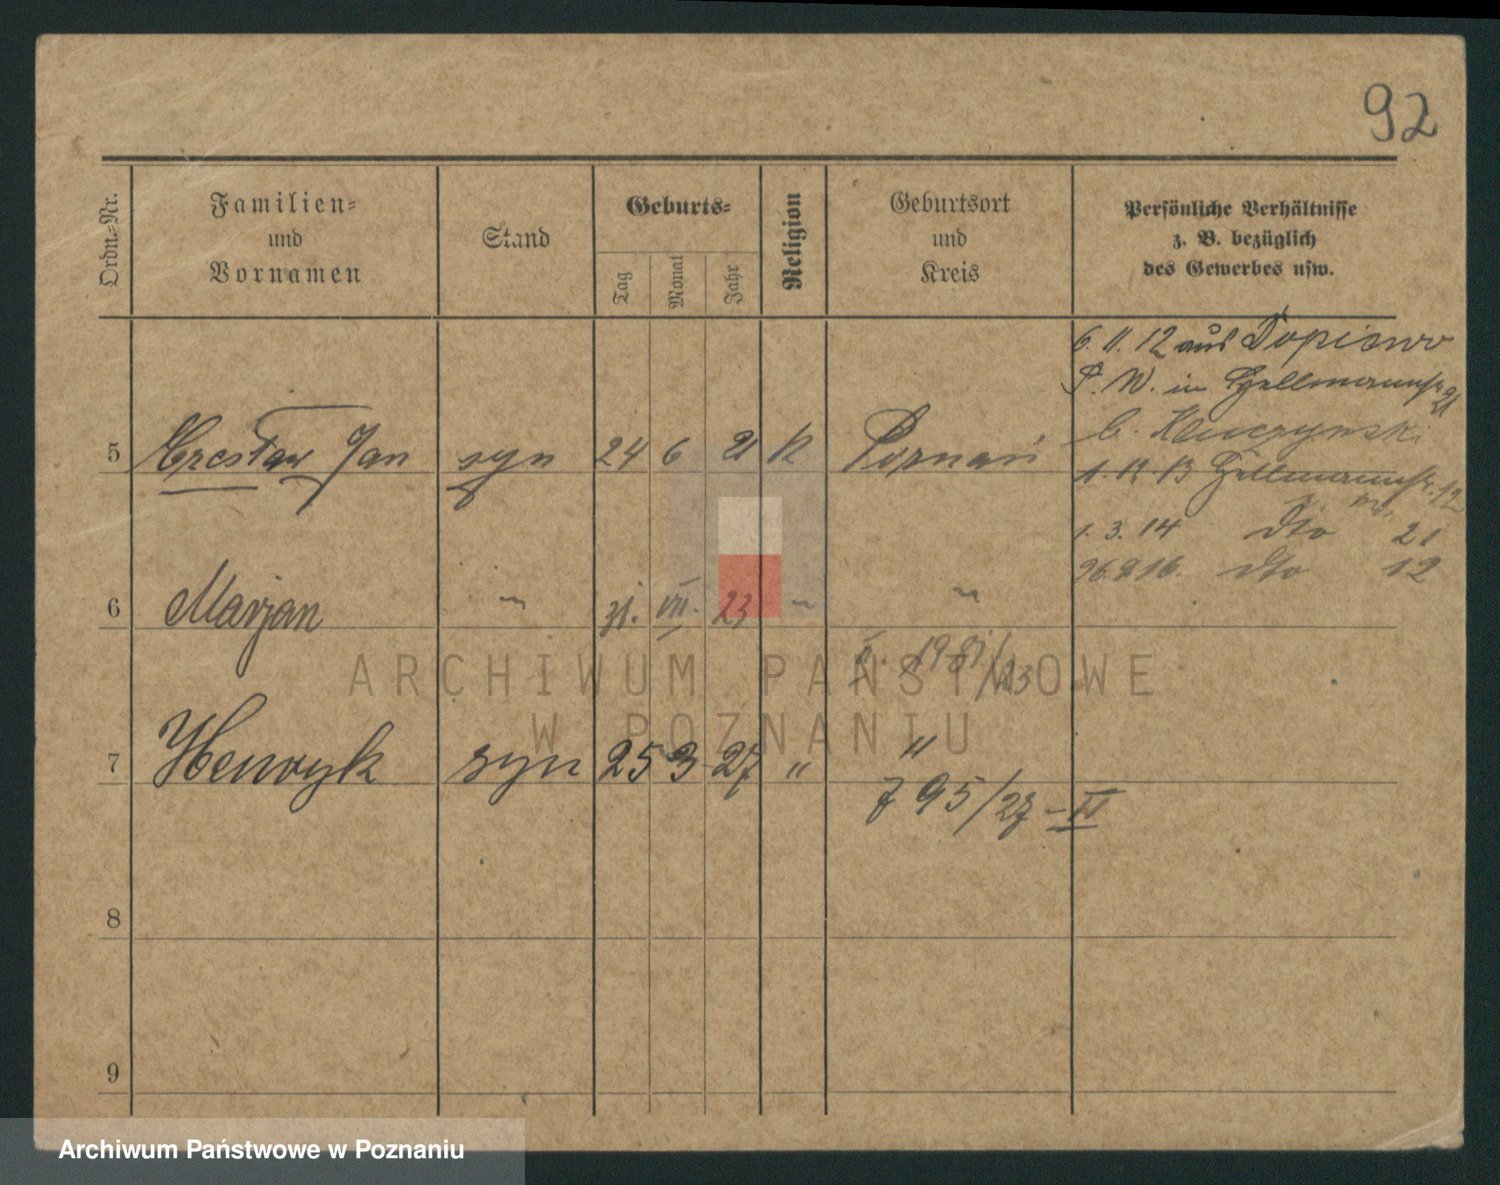 92
Ordn.-Nr.
Familien-
und
Vornamen
Stand
Geburts-
Tag
Monat
Jahr
Religion
Geburtsort
und
Kreis
Persönliche Verhältnisse
z. B. bezüglich
des Gewerbes usw.
6. 11. 12 aus Dopiewo
P. W. in Hellmannstr 21
b.
1. 12. 13 Hellmannstr. 12
1. 3. 14 dto 21
26. 9. 16. dto 12
5 Czesław Jan syn 24 6 21 K Poznań
6 Marjan " 31. VII. 23 " "
7 Henryk syn 25 3 27 " "
795/27 - II
8
9
ARCHIWUM PAŃSTWOWE
W POZNANIU
Archiwum Państwowe w Poznaniu